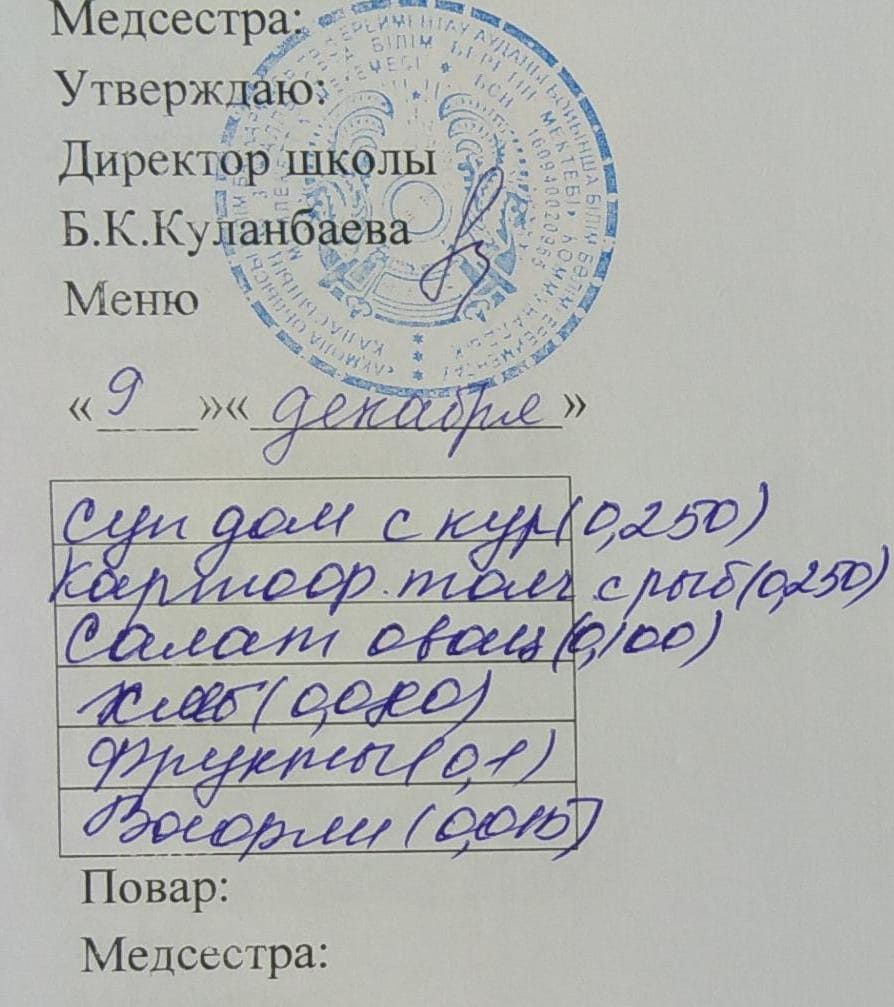 Медсестра:
Утверждаю:
Директор школы
Б.К.Куланбаева
Меню
«9»«декабря»
Суп дом с кур(0,250)
Картоф.толч с рыб(0,250)
Салат овощ(0,100)
Хлеб(0,080)
Фрукты(0,1)
(0,015)
Повар:
Медсестра: